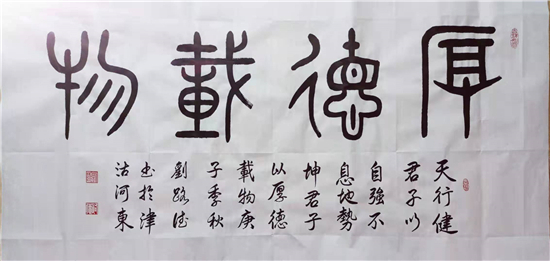 厚德載物
天行健
君子以
自強不
息地勢
坤君子
以厚德
載物庚
子季秋
劉路德
書於津
沽河東